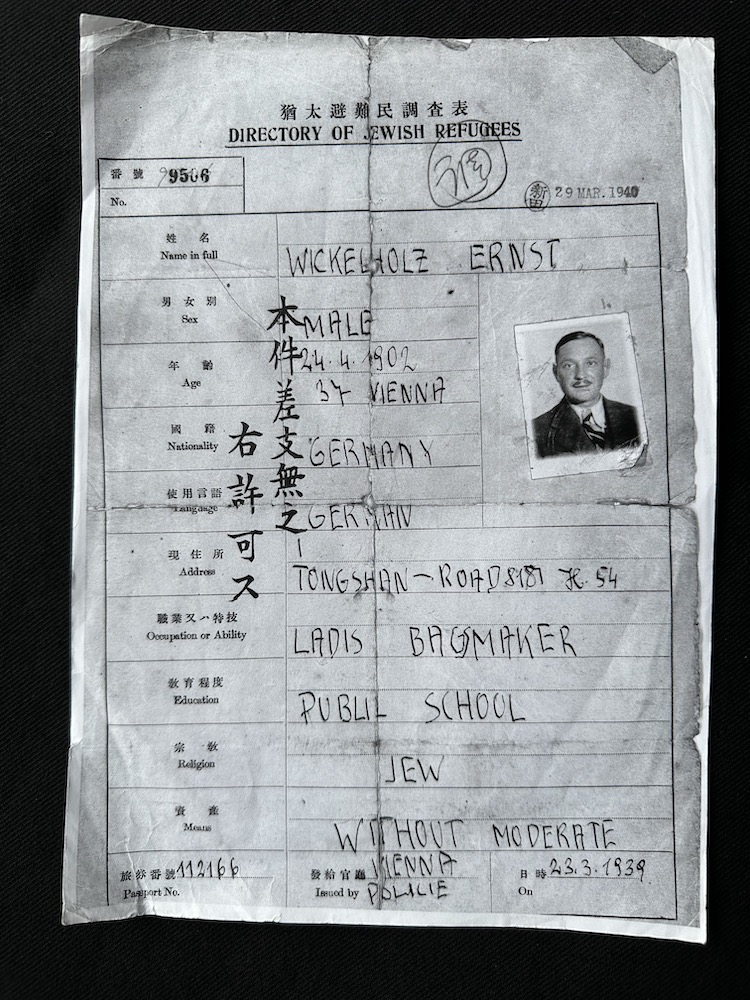 猶太避難民調查表
DIRECTORY OF JEWISH REFUGEES
番號 9506
No.
新田 29 MAR. 1940
姓名
Name in full WICKELHOLZ ERNST
男女別
Sex MALE
年齡 24.4.1902
Age 37 VIENNA
國籍
Nationality GERMANY
使用言語
Language GERMAN
現住所
Address TONGSHAN-ROAD 818 H. 54
職業又ハ特技
Occupation or Ability LADIS BAGMAKER
教育程度
Education PUBLIC SCHOOL
宗教
Religion JEW
資產
Means WITHOUT MODERATE
旅券番號 112166
Passport No.
發給官廳 VIENNA
Issued by POLICIE
日時 23.3.1939
On
本件差支無之
右許可ス